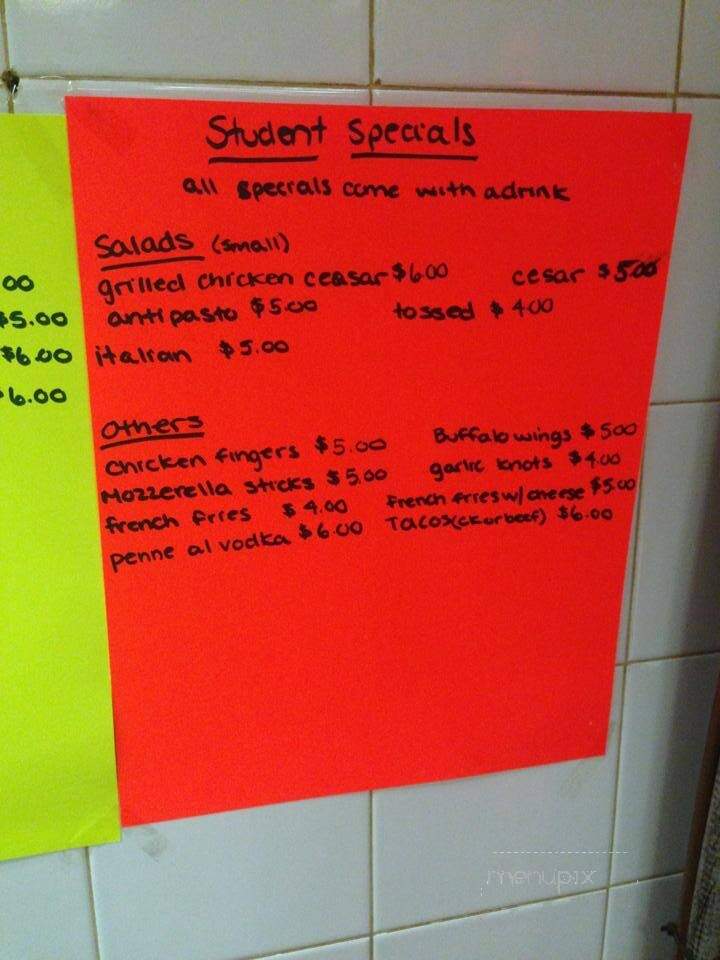 Student Specials
all specials come with a drink
Salads (small)
grilled chicken ceasar $6.00 cesar $5.00
antipasto $5.00 tossed $4.00
italian $5.00
Others
Chicken fingers $5.00 Buffalo wings $5.00
Mozzerella sticks $5.00 garlic knots $4.00
french fries $4.00 french fries w/ cheese $5.00
penne al vodka $6.00 Tacos (ck or beef) $6.00
00
$5.00
$6.00
6.00
menupix